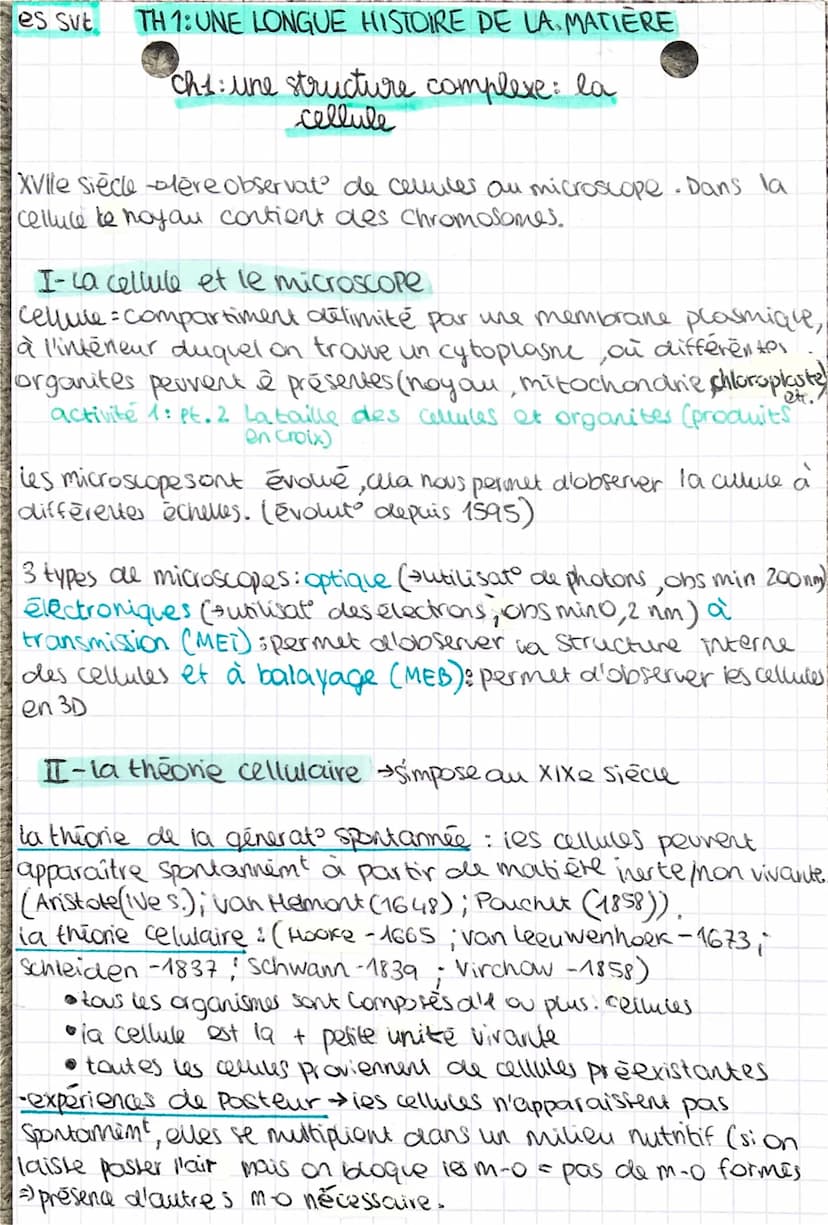 es svt. TH 1: UNE LONGUE HISTOIRE DE LA MATIÈRE
Ch1: une structure complexe: la
cellule
XVIIe siècle → 1ère observat° de cellules au microscope. Dans la
cellule le noyau contient des chromosomes.
I- La cellule et le microscope
Cellule = compartiment délimité par une membrane plasmique,
à l'intérieur duquel on trouve un cytoplasme, où différentes
organites peuvent ê présentes (noyau, mitochondrie, chloroplaste)
etc.
activité 1: pt. 2 La taille des cellules et organites (produits
en croix)
les microscopes ont évolué, cela nous permet d'observer la cellule à
différentes échelles. (évolut° depuis 1595)
3 types de microscopes: optique (→ utilisat° de photons, obs min 200 nm)
électroniques (→ utilisat° des électrons, obs min 0,2 nm) à
transmission (MET): permet d'observer la structure interne
des cellules et à balayage (MEB): permet d'observer les cellules
en 3D
II - la théorie cellulaire → s'impose au XIXe siècle
La théorie de la générat° spontannée : les cellules peuvent
apparaître spontannémt à partir de matière inerte/non vivante.
(Aristote (IVe s.); van Helmont (1648); Pouchet (1858)).
la théorie celulaire : (Hooke - 1665 ; van Leeuwenhoek - 1673 ;
Schleiden - 1837 ; Schwann - 1839 ; Virchow - 1858)
• tous les organismes sont composés d'1 ou plus. cellules
• la cellule est la + petite unité vivante
• toutes les cellules proviennent de cellules préexistantes
- expériences de Pasteur → les cellules n'apparaissent pas
spontanémt, elles se multiplient dans un milieu nutritif (si on
laisse passer l'air mais on bloque les m-o = pas de m-o formés
⇒ présence d'autres m-o nécessaire.